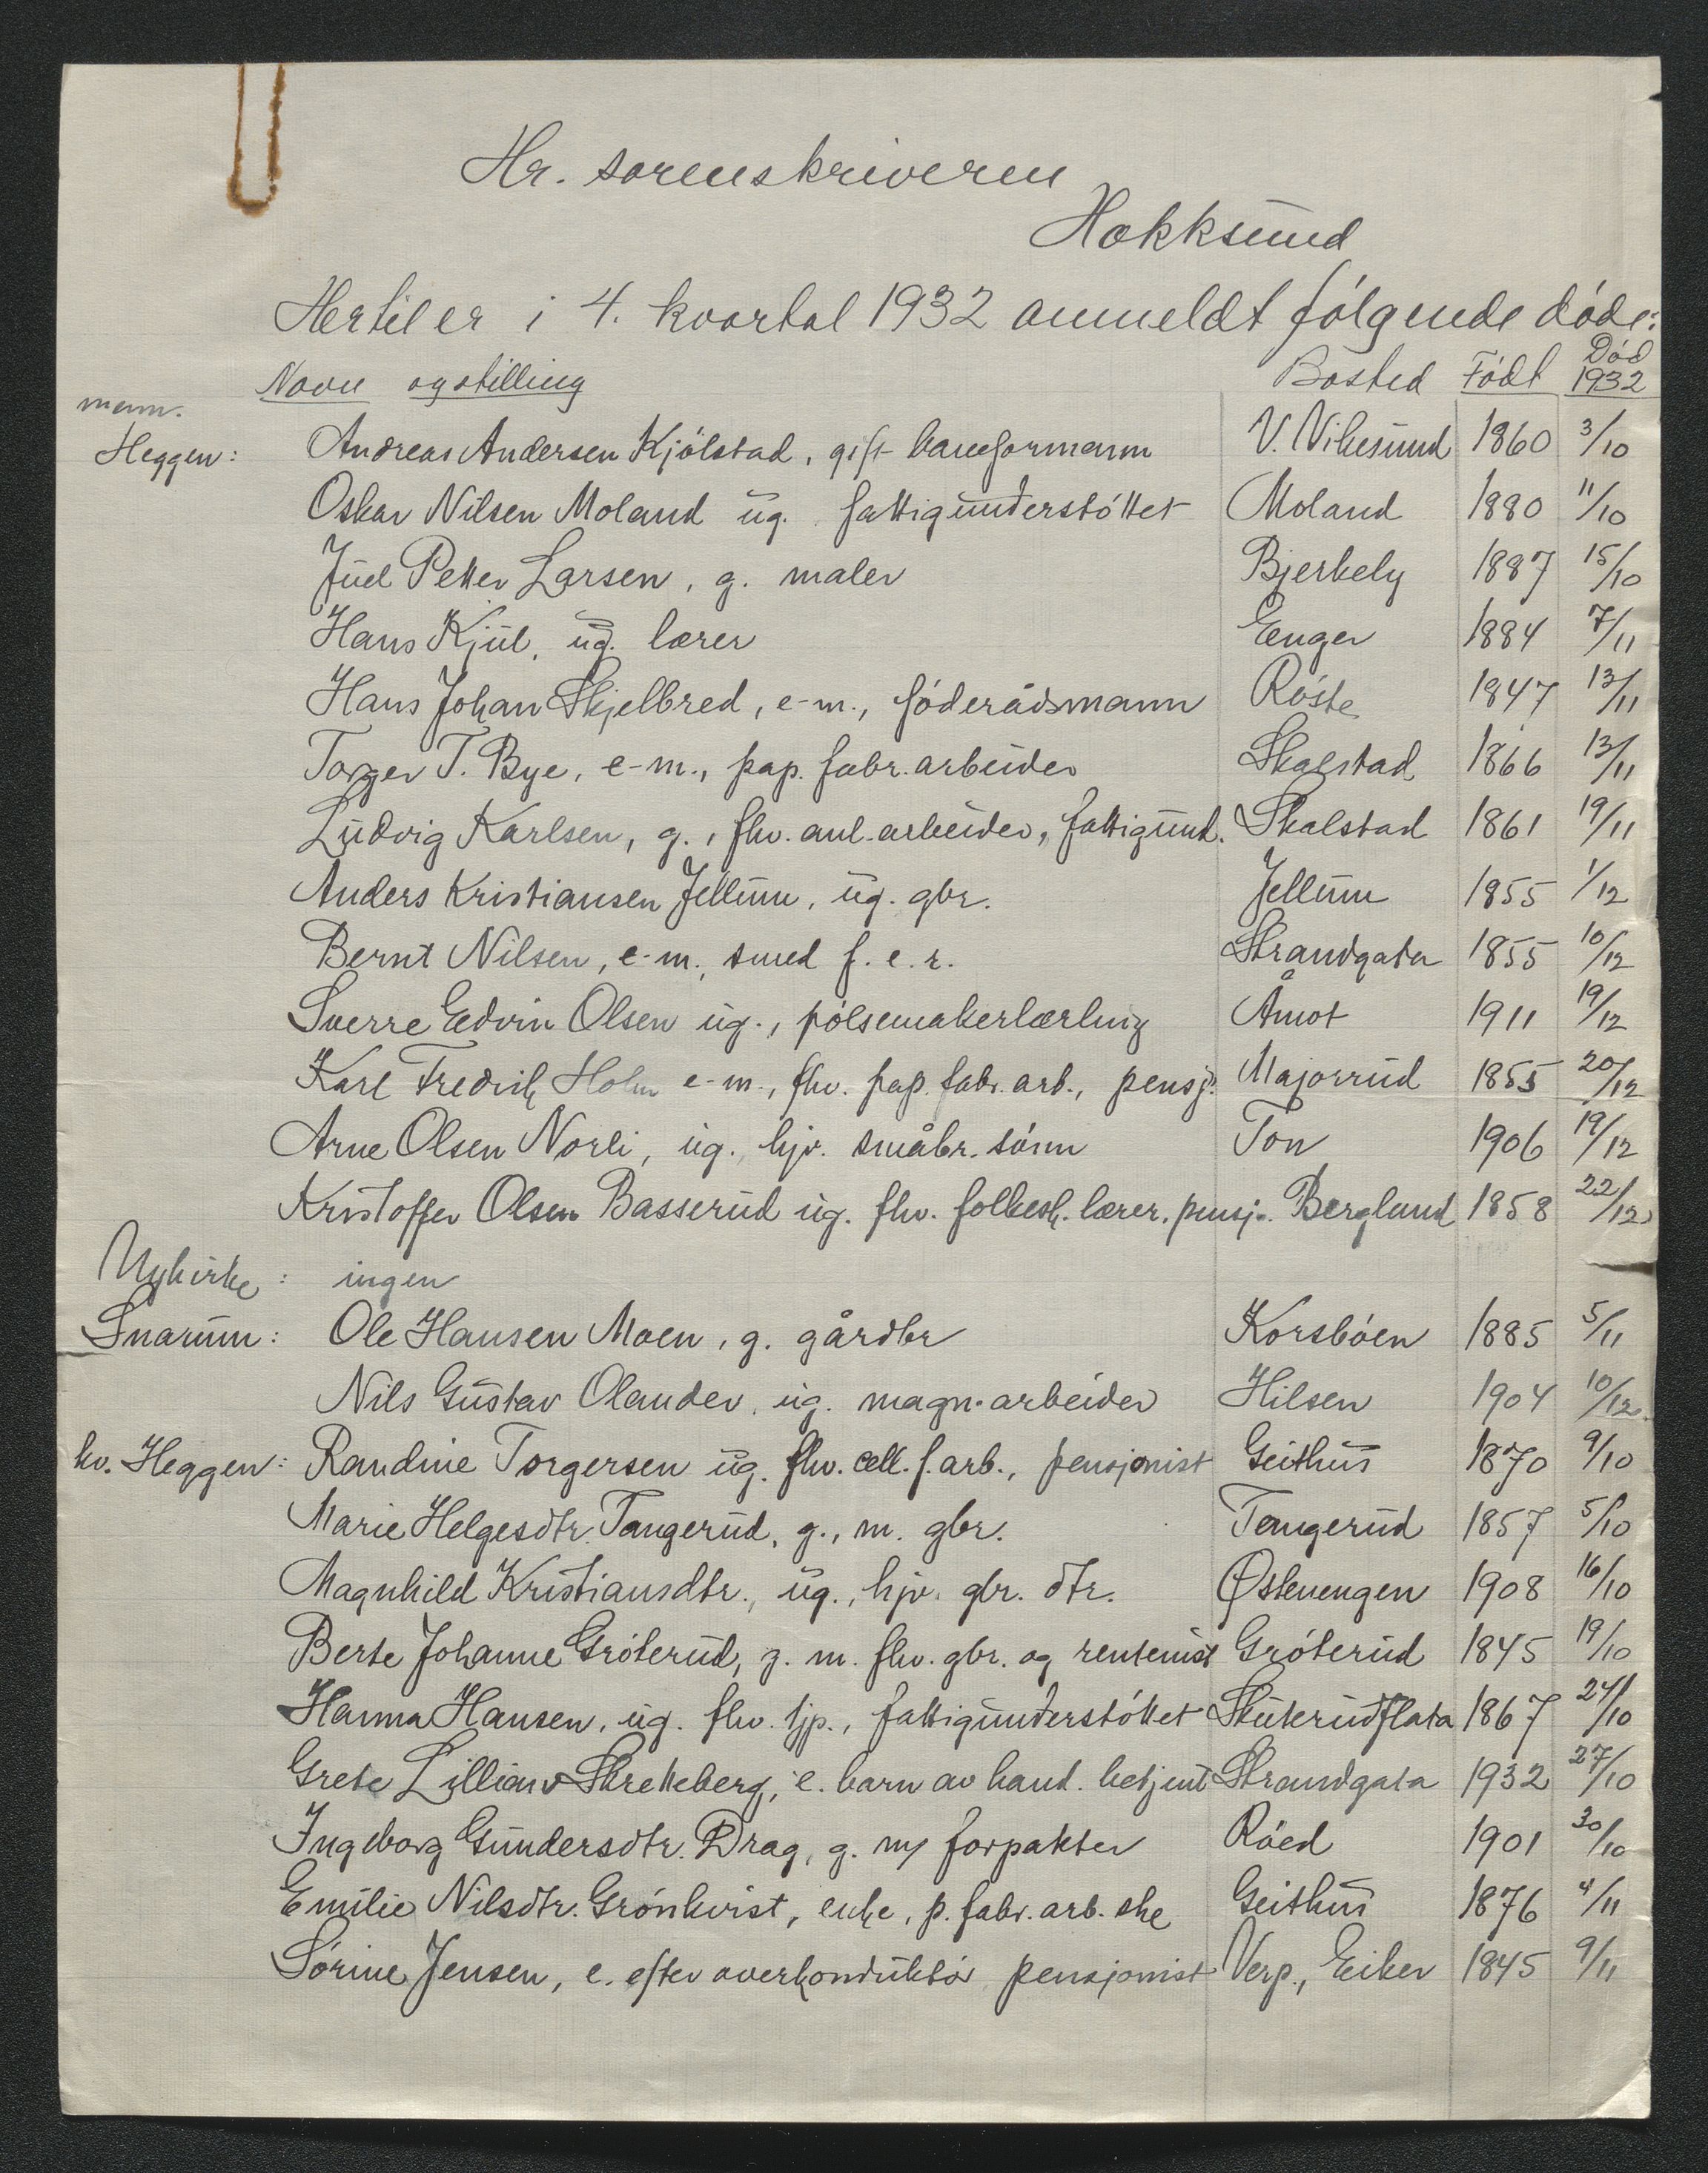 Hr. sorenskriveren
Hokksund
Hertil er i 4. kvartal 1932 anmeldt følgende døde:
Navn og stilling Bosted Født Død 1932
menn.
Heggen: Andreas Andersen Kjølstad, gift baneformann V. Vikesund 1860 3/10
Oskar Nilsen Moland ug. fattigunderstøttet Moland 1880 11/10
Juel Petter Larsen, g. maler Bjerkely 1887 15/10
Hans Kjul, ug. lærer Enger 1884 7/11
Hans Johan Skjelbred, e-m., føderådsmann Røste 1847 13/11
Torger T. Bye, e-m., pap. fabr. arbeider Skalstad 1866 13/11
Ludvig Karlsen, g., fhv. anl. arbeider, fattigund. Skalstad 1861 19/11
Anders Kristiansen Jellum, ug. gbr. Jellum 1855 1/12
Bernt Nilsen, e-m., smed f. e. r. Strandgata 1855 10/12
Sverre Edvin Olsen ug., pølsemakerlærling Åmot 1911 19/12
Karl Fredrik Holm e-m., fhv. pap. fabr. arb., pensj. Majorrud 1855 20/12
Arne Olsen Norli, ug., hjv. småbr. sønn Ton 1906 19/12
Kristoffer Olsen Basserud ug. fhv. folkesk. lærer, pensj. Berglund 1858 22/12
Nykirke: ingen
Snarum: Ole Hansen Moen, g. gårdbr Korsbøen 1885 5/11
Nils Gustav Olander, ug. magn. arbeider Hilsen 1904 10/12
kv. Heggen: Randine Torgersen ug. fhv. cell. f. arb., pensjonist Geithus 1870 9/10
Marie Helgesdtr. Tangerud, g., m. gbr. Tangerud 1857 5/10
Magnhild Kristiansdtr., ug., hjv. gbr. dtr. Østenengen 1908 16/10
Berte Johanne Grøterud, g. m. fhv. gbr. og rentenist Grøterud 1845 19/10
Hanna Hansen, ug. fhv. tjp., fattigunderstøttet Skuterudflata 1867 24/10
Grete Lillian Skretteberg, e. barn av hand. betjent Strandgata 1932 27/10
Ingeborg Gundersdtr. Drag, g. m/ forpakter Røed 1901 30/10
Emilie Nilsdtr. Grønkvist, enke, p. fabr. arb. ske Geithus 1876 4/11
Sørine Jensen, e. efter overkonduktør pensjonist Verp, Eiker 1845 9/11